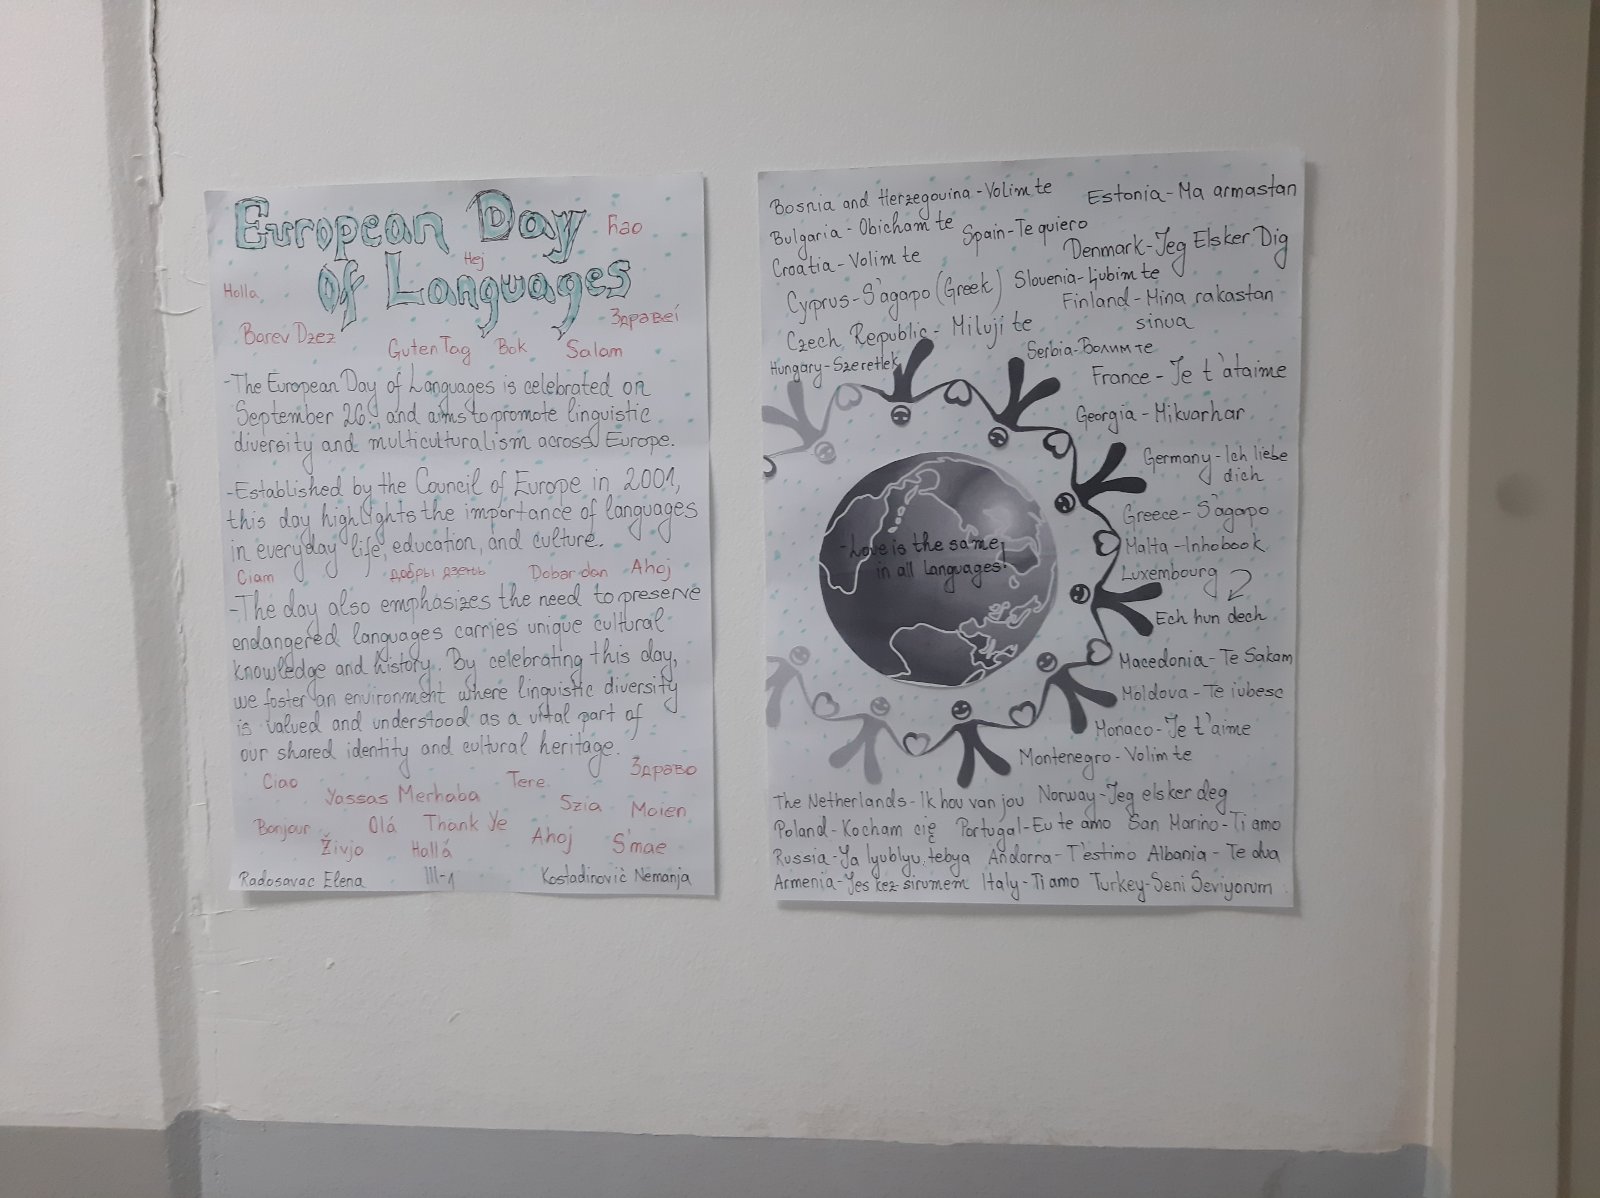 European Day
ћао
Hej
of Languages
Holla
Здравеі
Barev Dzez
Guten Tag
Bok
Salam
-The European Day of Languages is celebrated on
September 26., and aims to promote linguistic
diversity and multiculturalism across Europe.
-Established by the Council of Europe in 2001,
this day highlights the importance of languages
in everyday life, education, and culture.
Ciam
добры дзень
Dobar dan
Ahoj
-The day also emphasizes the need to preserve
endangered languages carries unique cultural
knowledge and history. By celebrating this day,
we foster an environment where linguistic diversity
is valued and understood as a vital part of
our shared identity and cultural heritage.
Ciao
Tere
Здраво
Yassas
Merhaba
Szia
Moien
Bonjour
Olá
Thank Ye
Ahoj
S'mae
Živjo
Hallá
Radosavac Elena
III-1
Kostadinović Nemanja
Bosnia and Herzegovina - Volim te
Estonia - Ma armastan
Bulgaria - Obicham te
Spain - Te quiero
Denmark - Jeg Elsker Dig
Croatia - Volim te
Slovenia - Ljubim te
Cyprus - S'agapo (Greek)
Finland - Mina rakastan
sinua
Czech Republic - Miluji te
Serbia - Волим те
Hungary - Szeretlek
France - Je t'ataime
Georgia - Mikvarhar
Germany - Ich liebe
dich
Greece - S'agapo
-Love is the same
in all languages!
Malta - Inhobook
Luxembourg
Ech hun dech
Macedonia - Te Sakam
Moldova - Te iubesc
Monaco - Je t'aime
Montenegro - Volim te
The Netherlands - Ik hou van jou
Norway - Jeg elsker deg
Poland - Kocham cię
Portugal - Eu te amo
San Marino - Ti amo
Russia - Ya lyublyu tebya
Andorra - T'estimo
Albania - Te dua
Armenia - Yes kez sirumem
Italy - Ti amo
Turkey - Seni Seviyorum